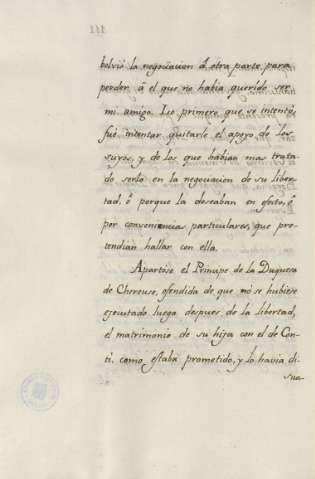 bolvió la negociacion á otra parte para
perder á el que no habia querido ser
mi amigo. Lo primero que se intentó,
fué intentar quitarle el apoyo de los
suyos, y de los que habian mas trata
do serlo en la negociacion de su liber-
tad, ó porque la deseaban en efecto, ó
por conveniencias particulares, que pre-
tendian hallar con ella.
Apartose el Principe de la Duquesa
de Chereuse, ofendida de que no se hubiese
ejecutado luego despues de la libertad,
el matrimonio de su hija con el de Con-
ti, como estaba prometido, y lo havia di-
sua-